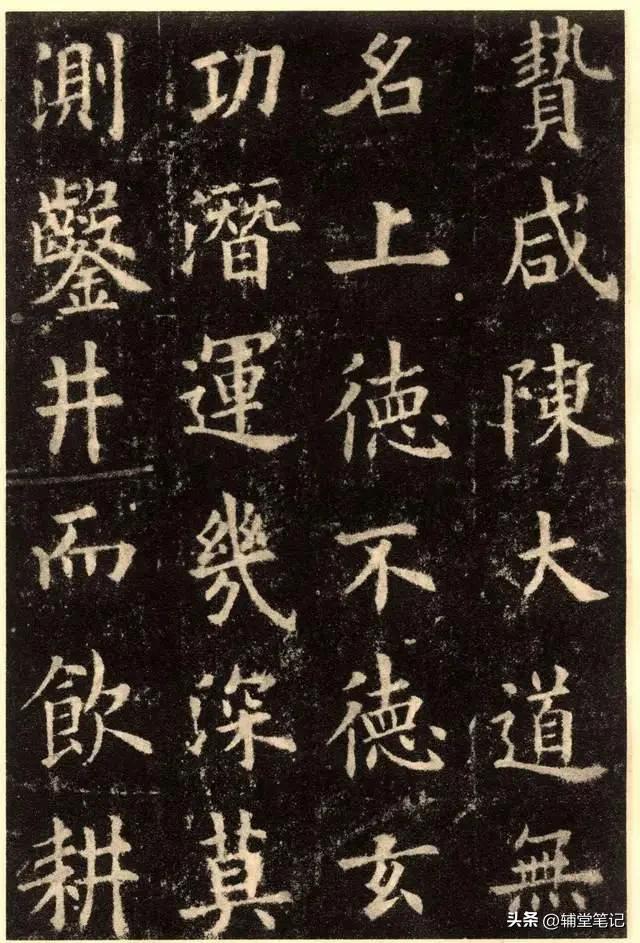 贄咸陳大道無
名上德不德玄
功潛運幾深莫
測鑿井而飲耕
头条@辅堂笔记